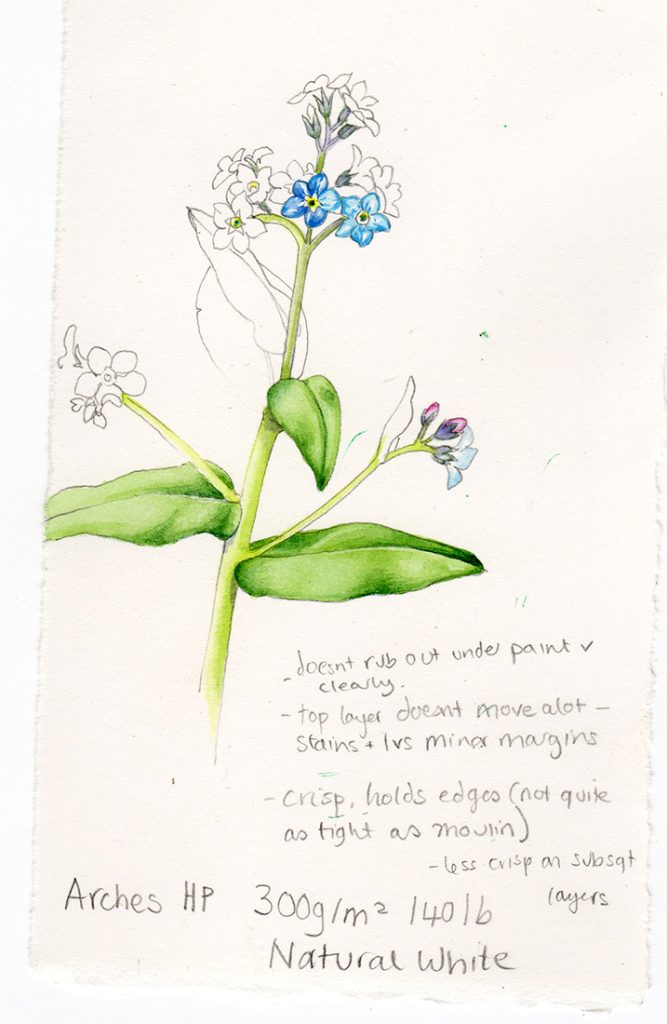 - doesnt rub out under paint v
clearly.
- top layer doesnt move alot -
stains + lvs minor margins
- crisp, holds edges (not quite
as tight as moulin)
- less crisp on subsqt
layers
Arches HP 300g/m² 140lb
Natural White